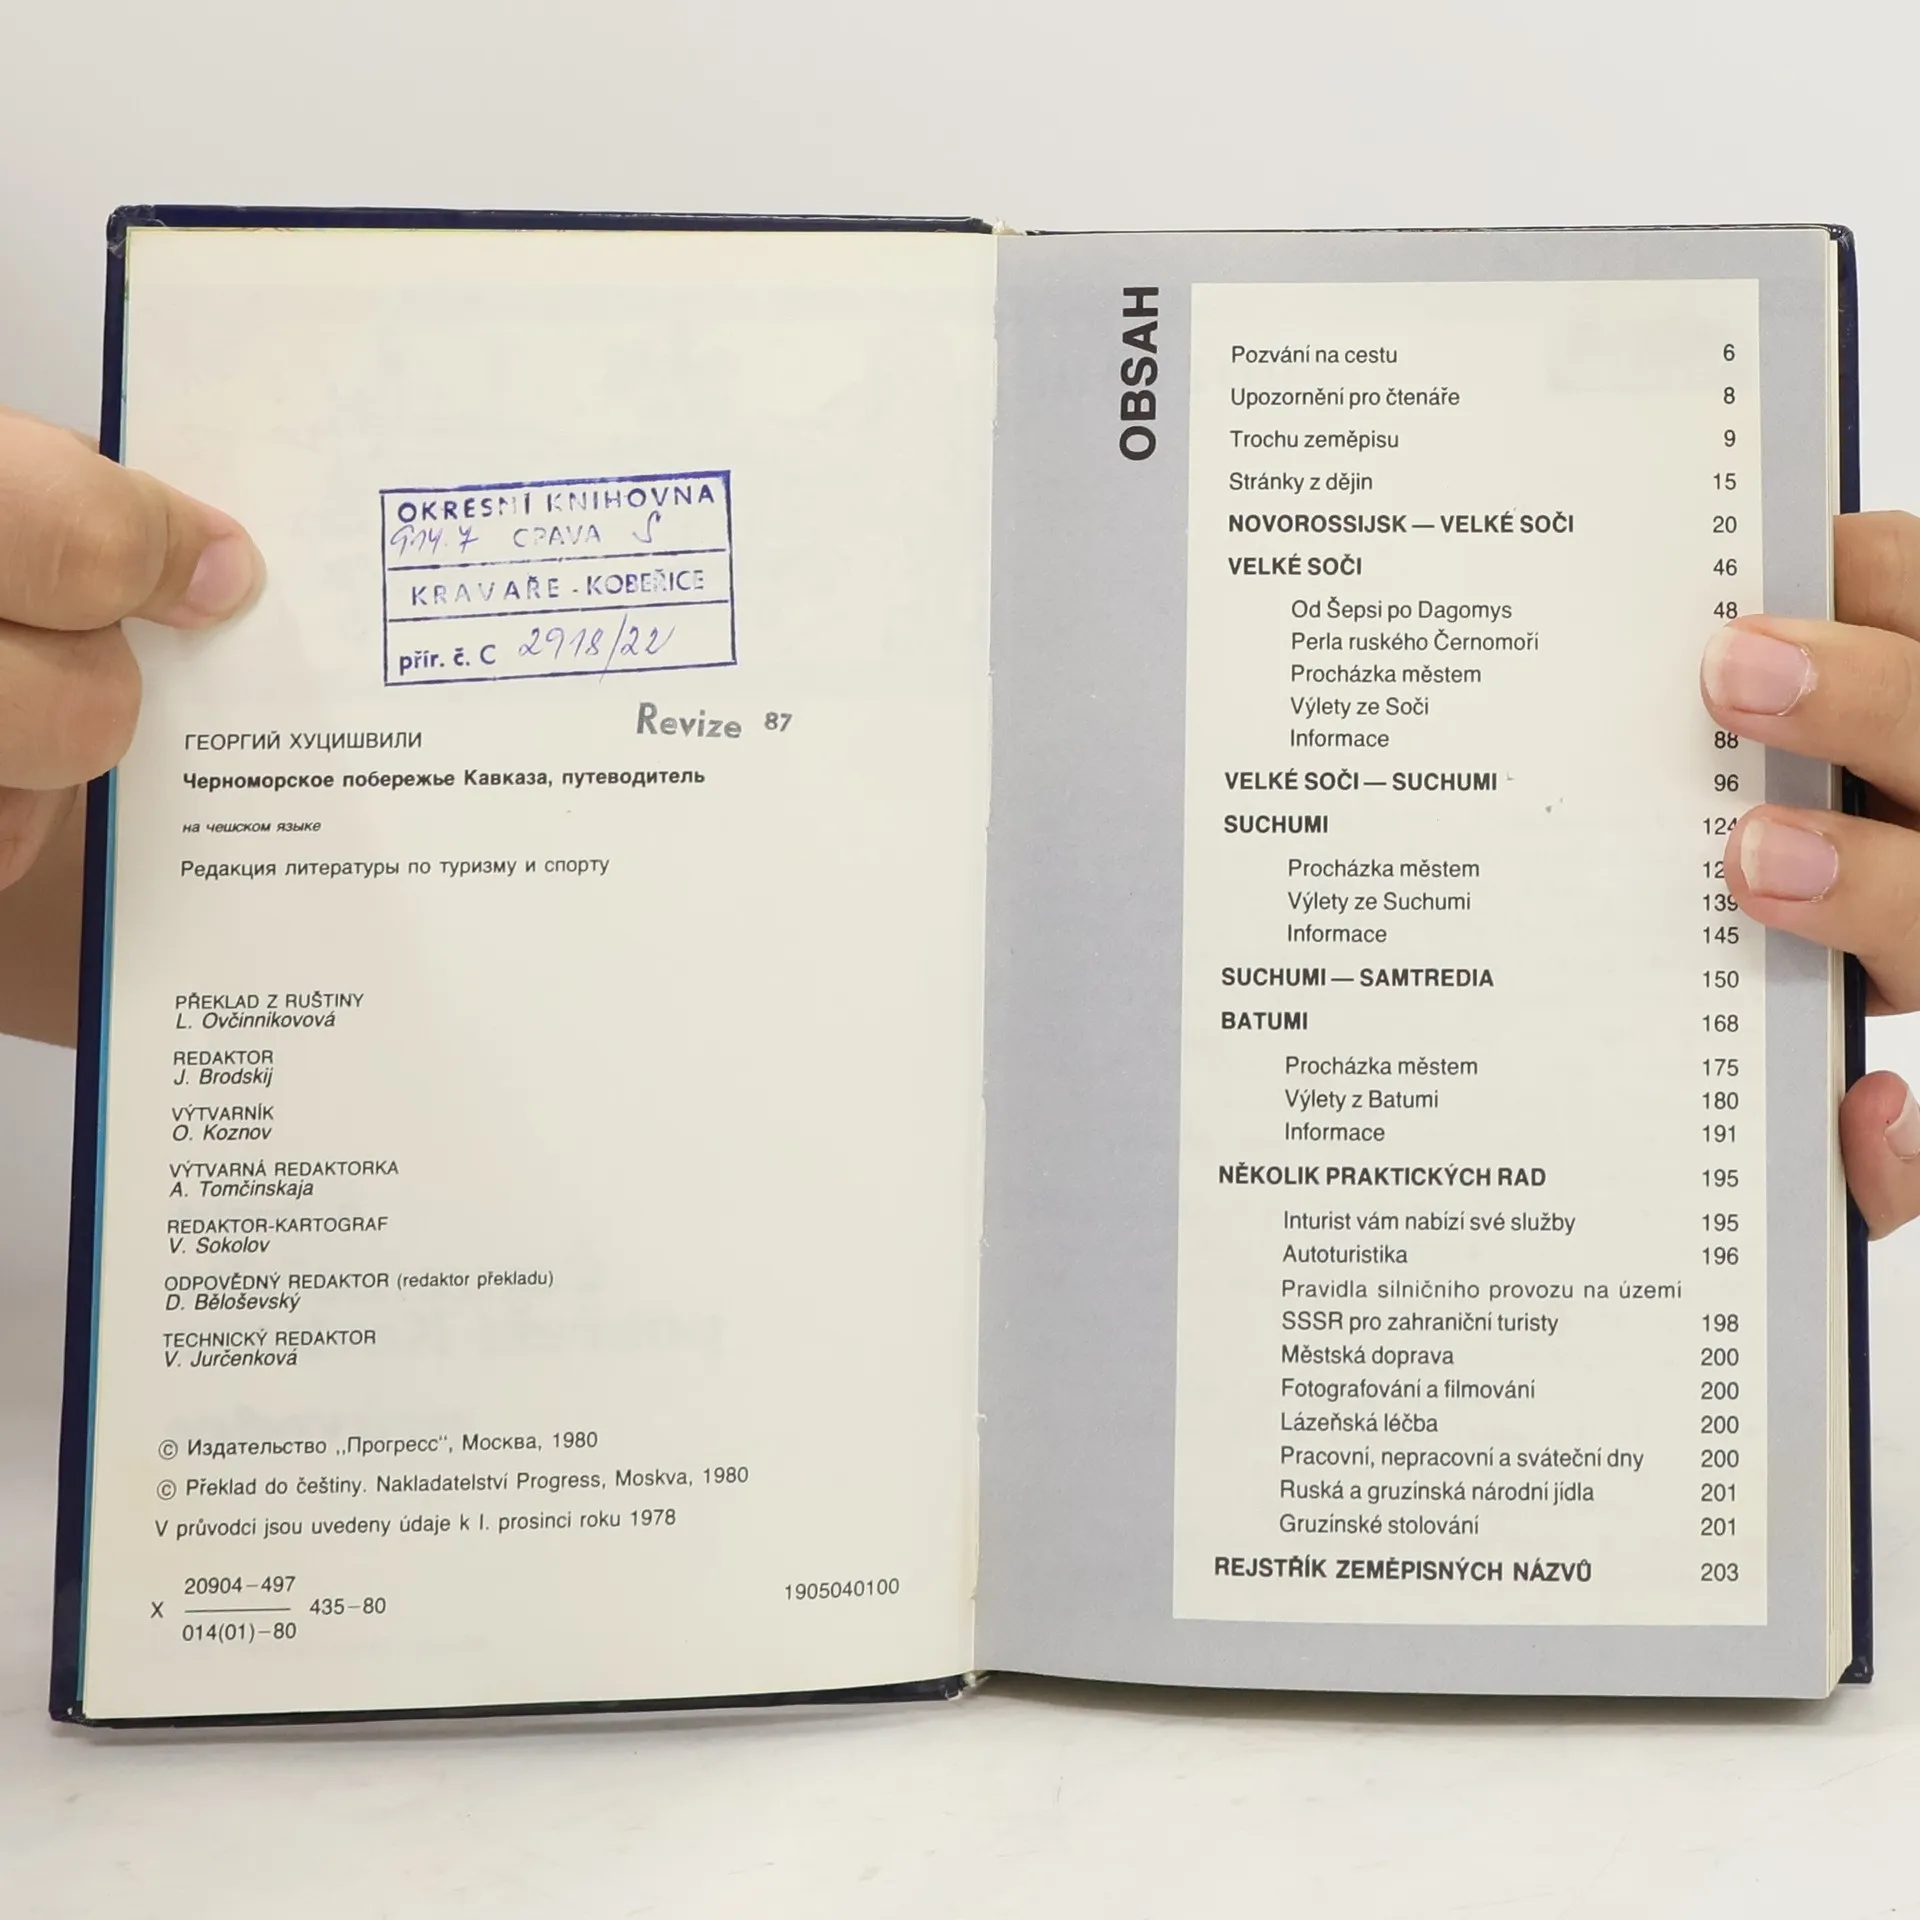 OKRESNÍ KNIHOVNA
914.7 OPAVA S
KRAVAŘE - KOBEŘICE
přír. č. C 2918/22
Revize 87
ГЕОРГИЙ ХУЦИШВИЛИ
Черноморское побережье Кавказа, путеводитель
на чешском языке
Редакция литературы по туризму и спорту
PŘEKLAD Z RUŠTINY
L. Ovčinnikovová
REDAKTOR
J. Brodskij
VÝTVARNÍK
O. Koznov
VÝTVARNÁ REDAKTORKA
A. Tomčinskaja
REDAKTOR-KARTOGRAF
V. Sokolov
ODPOVĚDNÝ REDAKTOR (redaktor překladu)
D. Běloševský
TECHNICKÝ REDAKTOR
V. Jurčenková
© Издательство „Прогресс“, Москва, 1980
© Překlad do češtiny. Nakladatelství Progress, Moskva, 1980
V průvodci jsou uvedeny údaje k I. prosinci roku 1978
20904-497
X 435-80
014(01)-80
1905040100
OBSAH
Pozvání na cestu 6
Upozornění pro čtenáře 8
Trochu zeměpisu 9
Stránky z dějin 15
NOVOROSSIJSK — VELKÉ SOČI 20
VELKÉ SOČI 46
Od Šepsi po Dagomys 48
Perla ruského Černomoří
Procházka městem
Výlety ze Soči
Informace 88
VELKÉ SOČI — SUCHUMI 96
SUCHUMI 124
Procházka městem
Výlety ze Suchumi 139
Informace 145
SUCHUMI — SAMTREDIA 150
BATUMI 168
Procházka městem 175
Výlety z Batumi 180
Informace 191
NĚKOLIK PRAKTICKÝCH RAD 195
Inturist vám nabízí své služby 195
Autoturistika 196
Pravidla silničního provozu na území
SSSR pro zahraniční turisty 198
Městská doprava 200
Fotografování a filmování 200
Lázeňská léčba 200
Pracovní, nepracovní a sváteční dny 200
Ruská a gruzínská národní jídla 201
Gruzínské stolování 201
REJSTŘÍK ZEMĚPISNÝCH NÁZVŮ 203